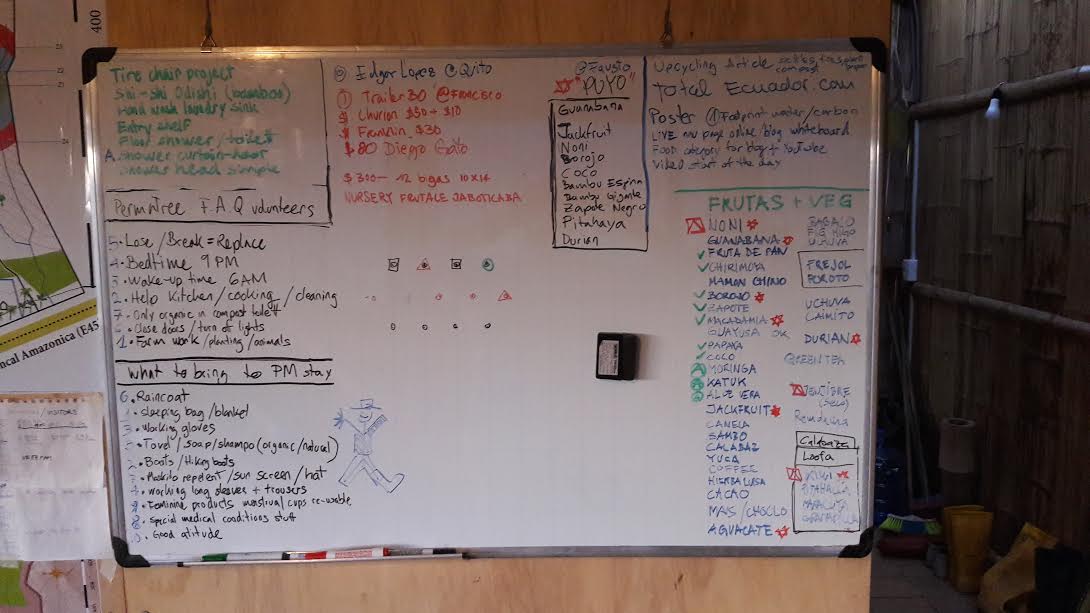 400
Tire chair project
Shi-Shi Odishi (bamboo)
Hand wash laundry sink
Entry shelf
Floor shower/toilett
A. Shower curtain-hoor
Shower head simple
PermaTree F.A.Q volunteers
5. Lose / Break = Replace
4. Bedtime 9 PM
3. Wake-up time 6AM
2. Help Kitchen / cooking / cleaning
7. Only organic in compost toilett
6. Close doors / turn of lights
1. Farm work / planting / animals
What to bring to PM stay
6. Raincoat
sleeping bag / blanket
working gloves
Towel / soap / shampo (organic / natural)
Boots / Hiking boots
Moskito repelent / sun screen / hat
working long sleeves + trousers
Feminine products menstrual cups re-usable
8. special medical conditions stuff
Good atitude
Edgar Lopez @Quito
Trailer 30 @Francisco
Churon $50 + $10
Franklin $30
$80 Diego Gato
$300- 12 bigas 10x14
NURSERY FRUTALE JABOTICABA
@Fausto
"PUYO"
Guanabana
Jackfruit
Noni
Borojo
Coco
Bambu Espina
Bambu Gigante
Zapote Negro
Pitahaya
Durian
Upcycling Article
compost
Total Ecuador.com
Poster 1 Footprint water/carbon
LIVE now page online/blog whiteboard
Food category for blog + YouTube
Video start of the day
FRUTAS + VEG
NONI
GUANABANA
FRUTA DE PAN
CHIRIMOYA
MAMON CHINO
BOROJO
ZAPOTE
MACADAMIA
GUAYUSA OK
PAPAYA
COCO
MORINGA
KATUK
ALOE VERA
JACKFRUIT
CANELA
SAMBO
CALABAZ
YUCA
COFFEE
HIERBA LUISA
CACAO
MAIS / CHOCLO
AGUACATE
FIG HIGO
UCHUVA
FREJOL
POROTO
UCHUVA
CAIMITO
DURIAN
GREEN TEA
JENJIBRE
(SECO)
Remolacha
Calabaza
Loofa
KIWI
PITAHALLA
MARACUYA
GRANADILLA
ncal Amazonica (E45
VISITORS